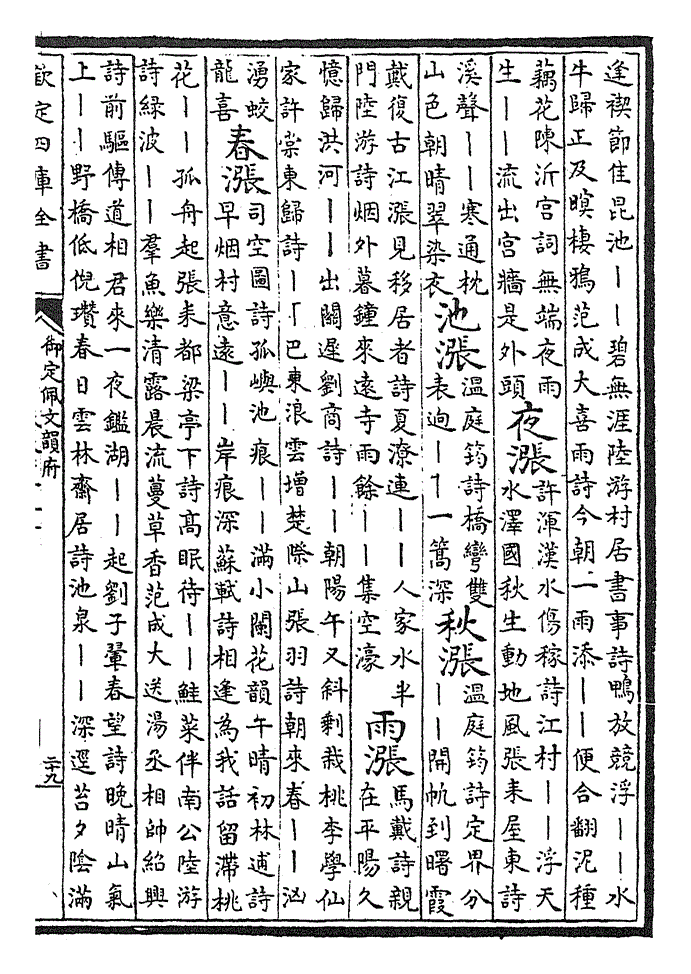 逢禊節佳昆池——碧無涯陸游村居書事詩鴨放競浮——水
牛歸正及暝棲鴉范成大喜雨詩今朝一雨添——便合翻泥種
藕花陳沂宮詞無端夜雨
生——流出宮牆是外頭
夜漲
許渾漢水傷稼詩江村——浮天
水澤國秋生動地風張耒屋東詩
溪聲——寒通枕
山色朝晴翠染衣
池漲
溫庭筠詩橋彎雙
表迥——一篙深
秋漲
溫庭筠詩定界分
——開帆到曙霞
戴復古江漲見移居者詩夏潦連——人家水半
門陸游詩烟外暮鐘來遠寺雨餘——集空濠
雨漲
馬戴詩親
在平陽久
憶歸洪河——出關遲劉商詩——朝陽午又斜剩栽桃李學仙
家許棠東歸詩——巴東浪雲增楚際山張羽詩朝來春——汹
湧蛟
龍喜
春漲
司空圖詩孤嶼池痕——滿小闌花韻午晴初林逋詩
早烟村意遠——岸痕深蘇軾詩相逢為我話留滯桃
花——孤舟起張耒都梁亭下詩高眠待——鮭菜伴南公陸游
詩綠波——羣魚樂清露晨流蔓草香范成大送湯丞相帥紹興
詩前驅傳道相君來一夜鑑湖——起劉子翬春望詩晚晴山氣
上——野橋低倪瓚春日雲林齋居詩池泉——深逕苔夕陰滿
欽定四庫全書
御定佩文韻府
二十九